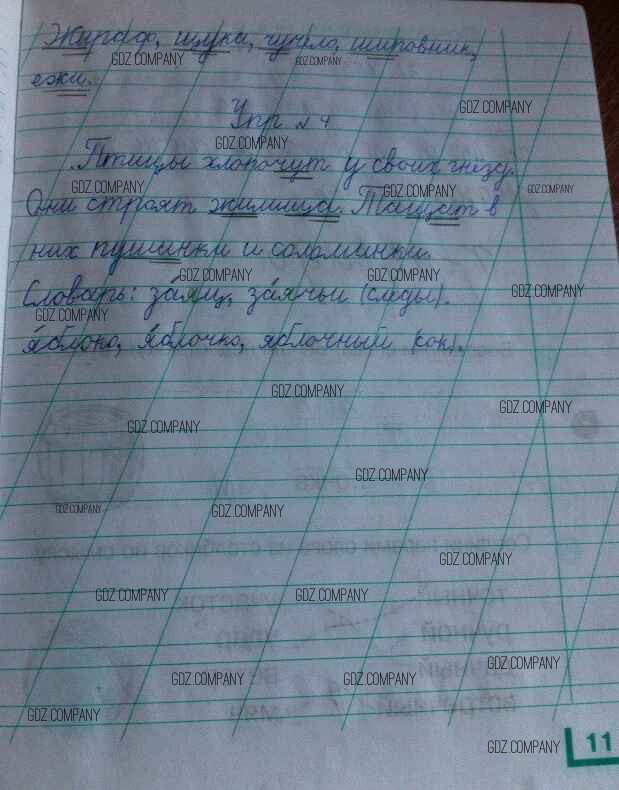 Жираф, щука, чучело, шиповник,
ежи.
Упр. № 4
Птицы хлопочут у своих гнёзд.
Они строят жилища. Тащат в
них пушинки и соломинки.
Словарь: за́яц, за́ячьи (следы).
я́блоко, я́блочко, яблочный (сок).
11
GDZ.COMPANY